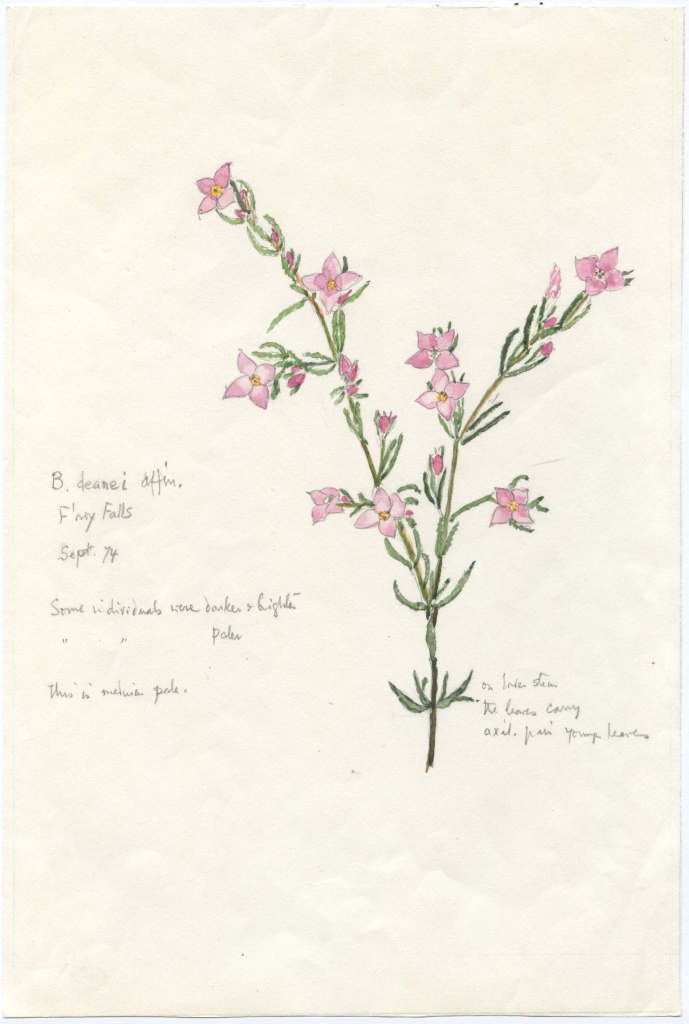 B. deanei affin.
F'roy Falls
Sept. 74
Some individuals were darker & brighter
" " paler
This is medium pale.
on lower stem
the leaves carry
axil. pair younger leaves